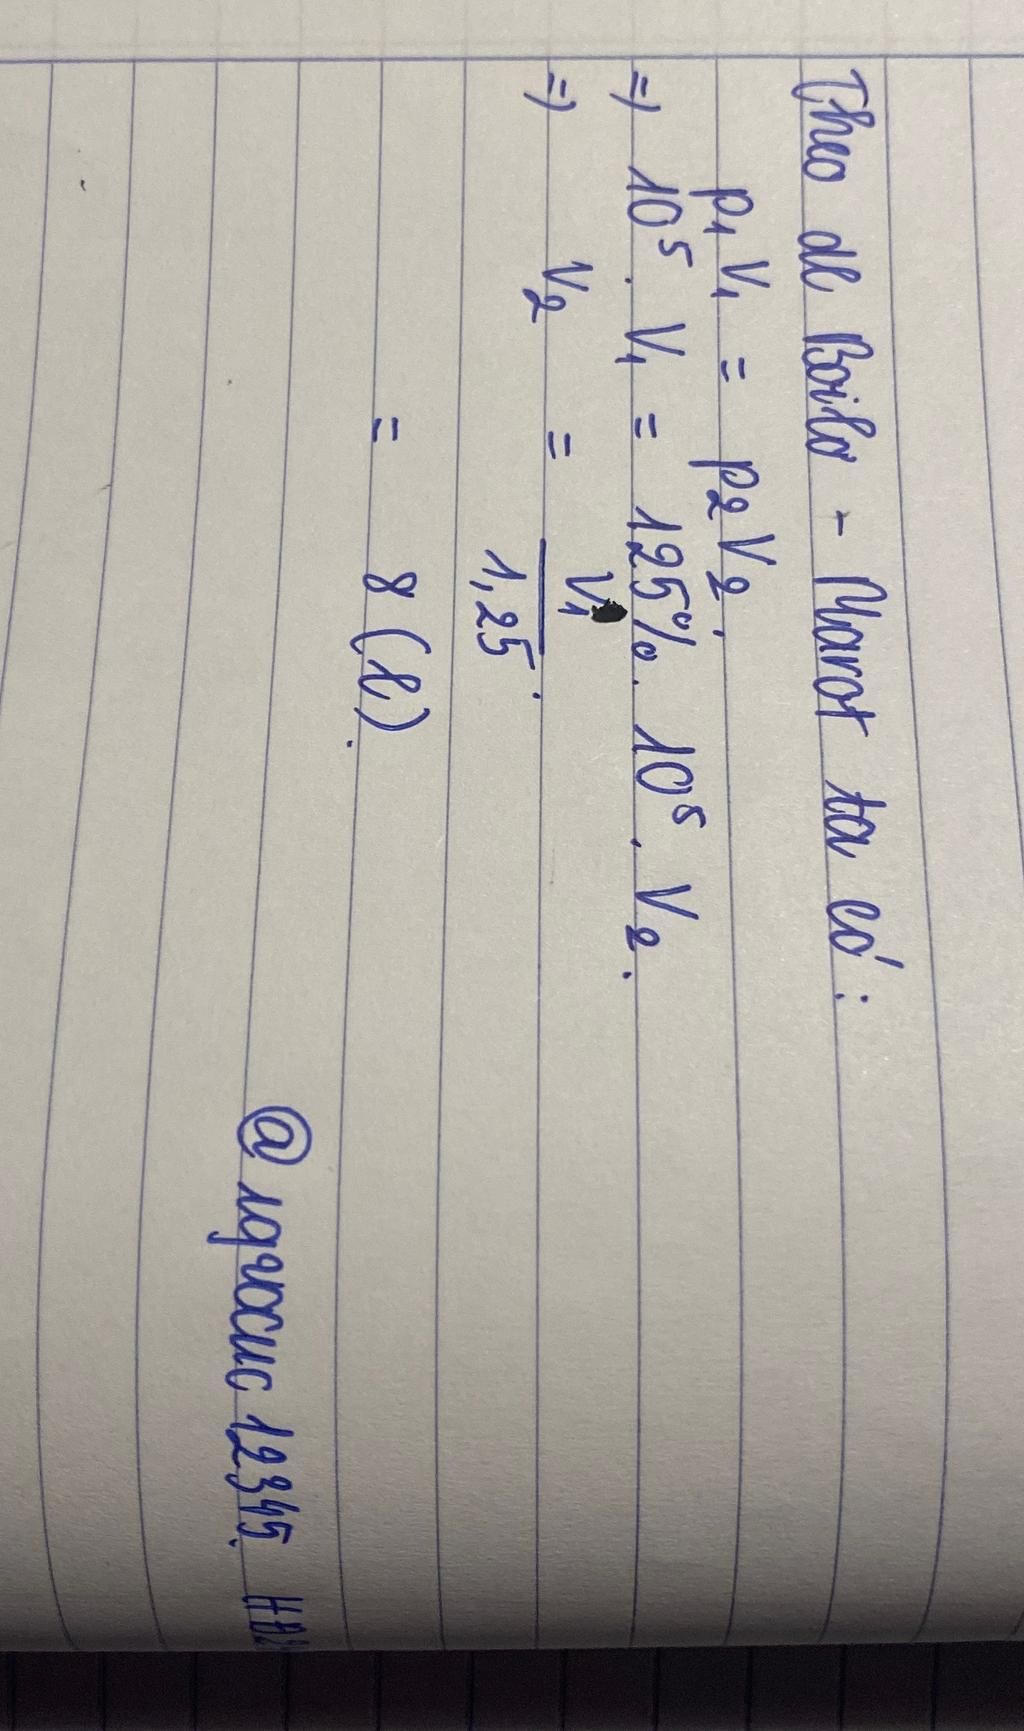 Theo đl Boilơ - Mariot ta có:
p₁V₁ = p₂V₂.
=> 10⁵ . V₁ = 125% . 10⁵ . V₂.
=> V₂ = V₁ / 1,25.
= 8 (l).
12345